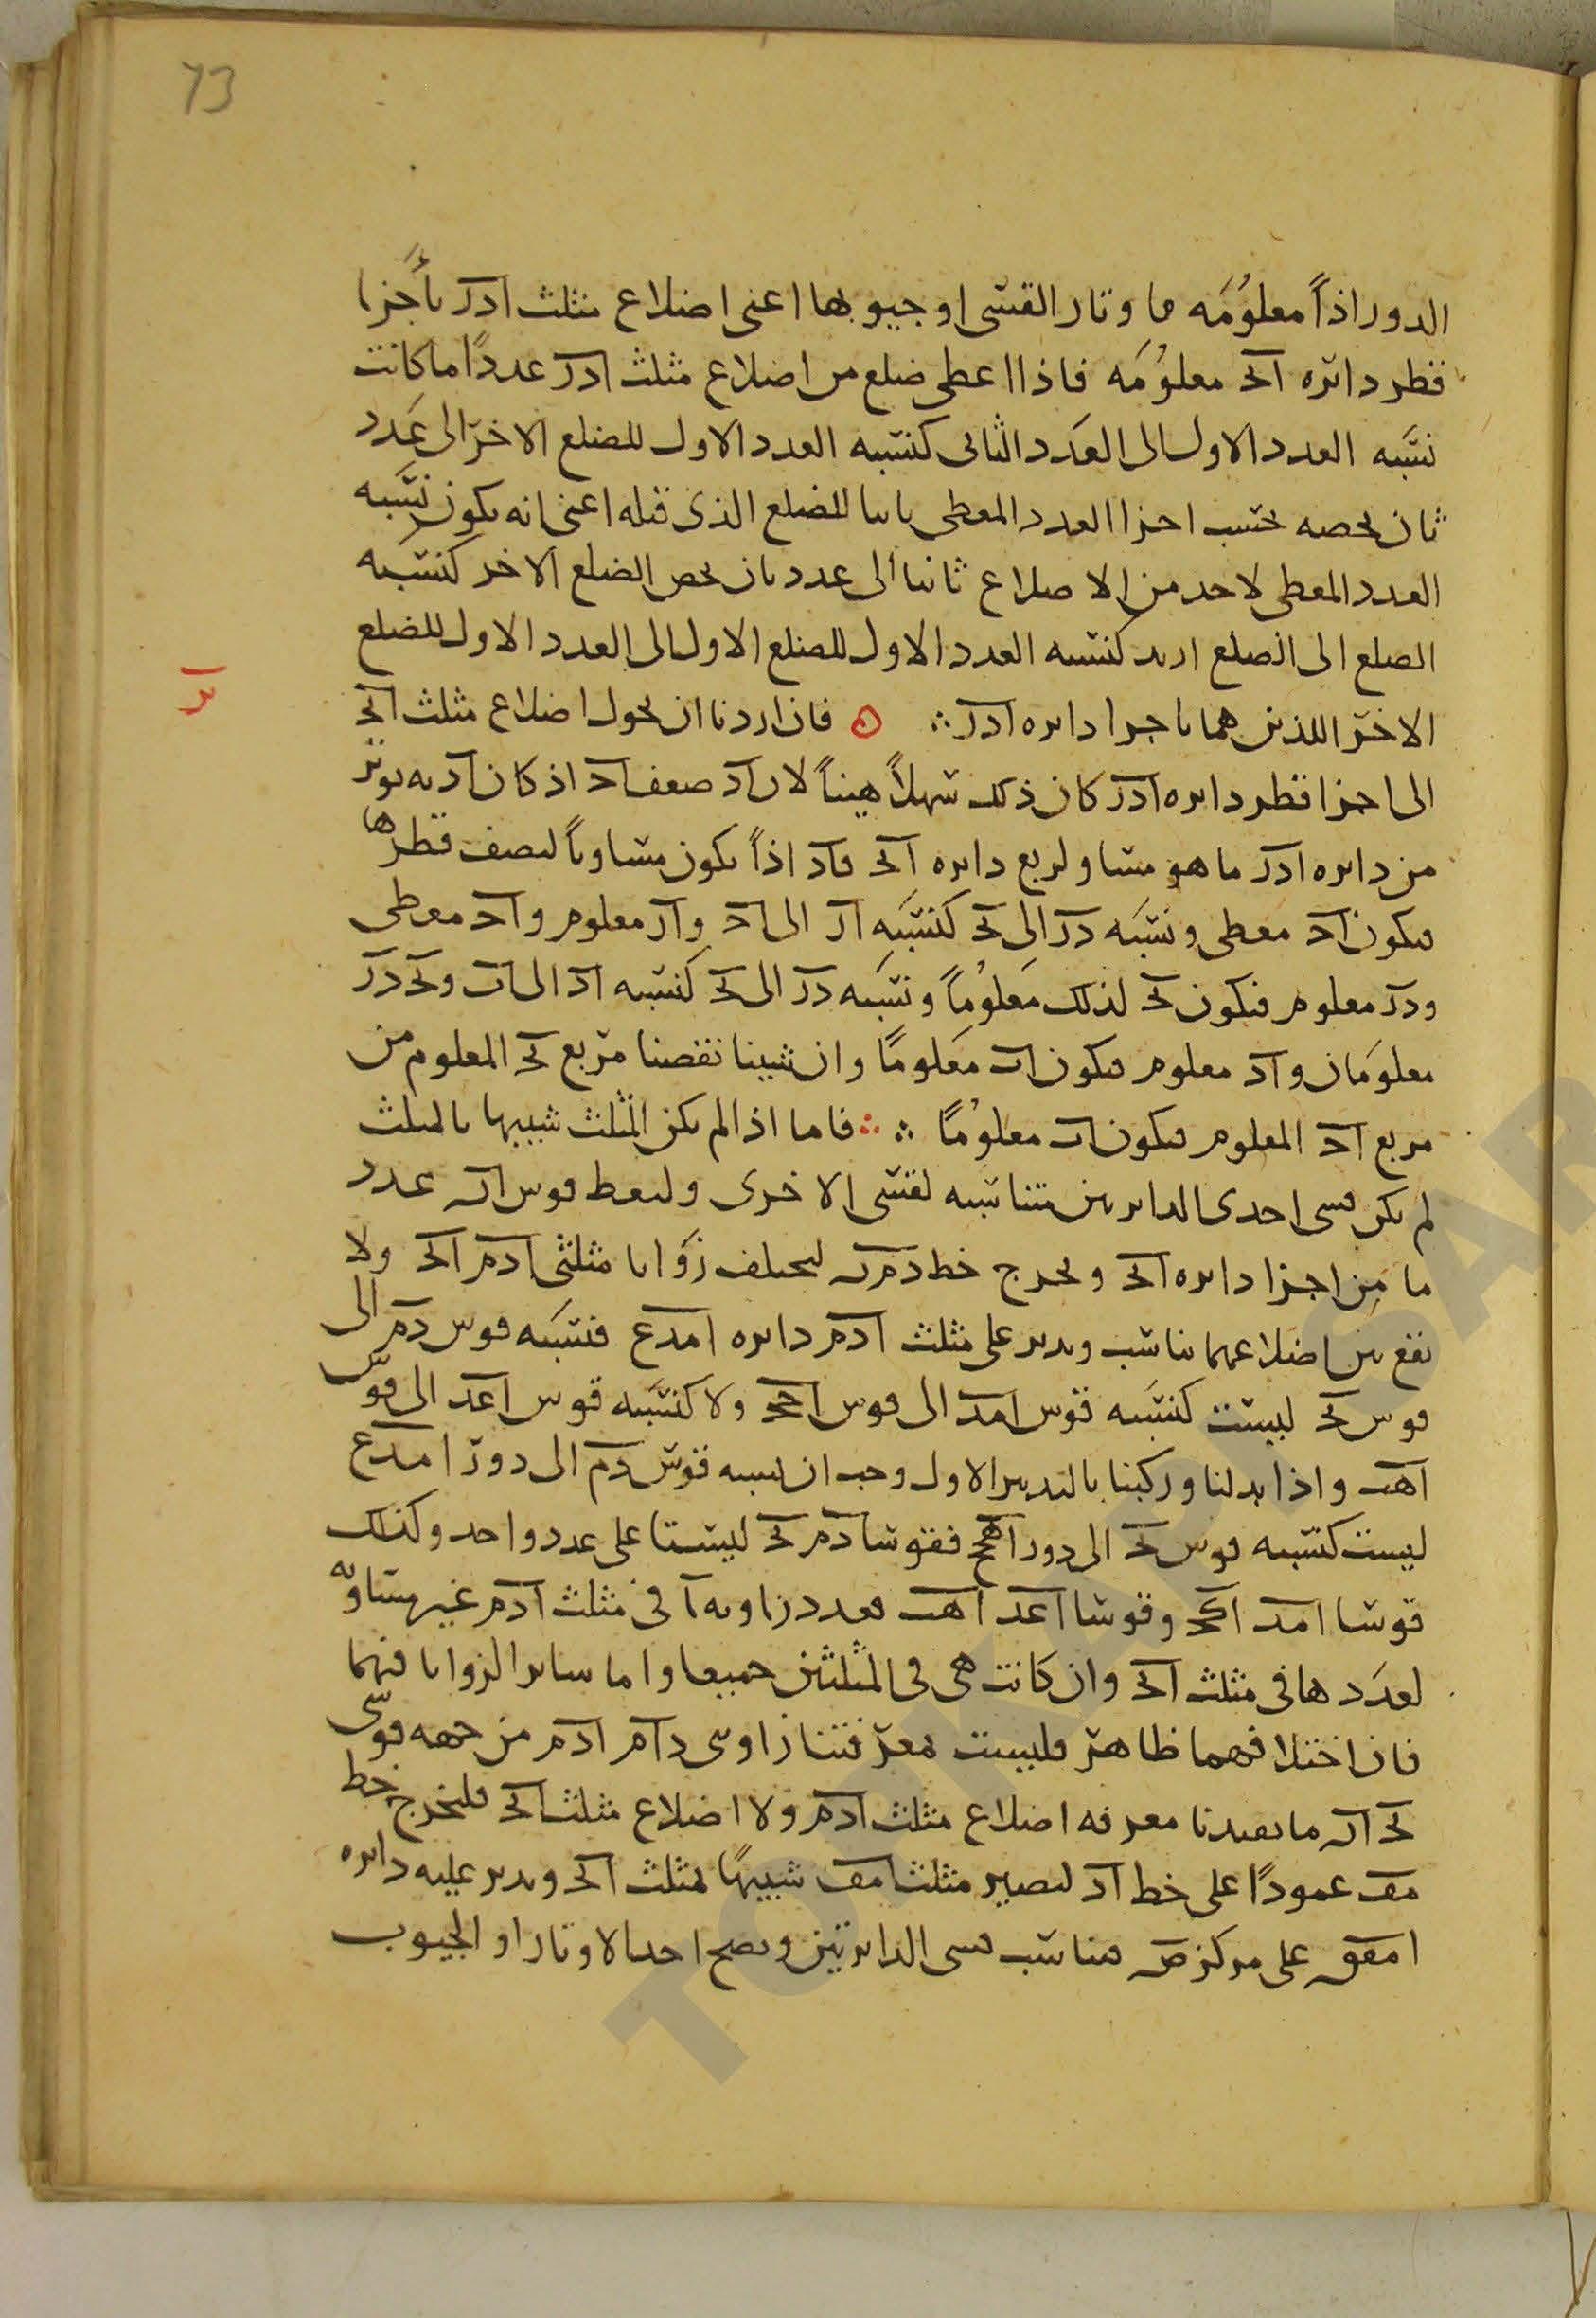 73
الدور اذاً معلومه فاوتار القسى او جيوبها اعنى اضلاع مثلث ادر باجزا
قطر دائره ابح معلومه فاذا اعطى ضلع من اضلاع مثلث ادر عدداً ما كانت
نسبه العدد الاول الى العدد الثانى كنسبه العدد الاول للضلع الاخر الى عدد
ثان يخصه بحسب اجزا العدد المعطى ثانيا للضلع الذى قبله اعنى انه يكون نسبه
العدد المعطى لاحد من الاضلاع ثانيا الى عدد ثان يخص الضلع الاخر كنسبه
الضلع الى الضلع اريد كنسبه العدد الاول للضلع الاول الى العدد الاول للضلع
الاخر اللذين هما باجزا دايره ادر فان اردنا ان نحول اضلاع مثلث ابح
الى اجزا قطر دايره ادر كان ذلك سهلاً هيناً لان اد ضعف اح اذ كان اد يه يوتر
من دايره ادر ما هو مساو لربع دايره ابح فاد اذاً يكون مساوياً لنصف قطرها
فيكون اح معطى ونسبه در الى بح كنسبه ار الى اح وار معلوم واح معطى
ودر معلوم فيكون بح لذلك معلوماً ونسبه در الى بح كنسبه اد الى اب وبح در
معلومان واد معلوم فيكون اب معلوماً وان شينا نقصنا مربع بح المعلوم من
مربع اح المعلوم فيكون اب معلوماً فاما اذا لم يكن المثلث شبيها بالمثلث
لم يكن قسى احدى الدايرتين متناسبه لقسى الاخرى وليعط قوس اه عدد
ما من اجزا دايره ابح ويخرج خط دم ه ليختلف زوايا مثلثى ادم ابح ولا
يقع بين اضلاعهما تناسب وندير على مثلث ادم دايره امدع فنسبه قوس دم الى
قوس بح ليست كنسبه قوس امد الى قوس احح ولا كنسبه قوس اعد الى قوس
اهب واذا بدلنا وركبنا بالتدبير الاول وجب ان نسبه قوس دم الى دور امدع
ليست كنسبه قوس بح الى دور اهح فقوسا دم بح ليستا على عدد واحد وكذلك
قوسا امد ابح وقوسا اعد اهب فعدد زاويه آ فى مثلث ادم غير مساويه
لعددها فى مثلث ابح وان كانت هى فى المثلثين جميعا واما ساير الزوايا فيهما
فان اختلافهما ظاهر فليست معرفتنا زاويتى دام ادم من جهه قوسى
بح اه ما يفيدنا معرفه اضلاع مثلث ادم ولا اضلاع مثلث ابح فليخرج خط
مف عموداً على خط اد ليصير مثلث امف شبيهاً لمثلث ابح وندير عليه دايره
امفق على مركز ص فتناسب قسى الدايرتين ويصح احد الاوتار او الجيوب